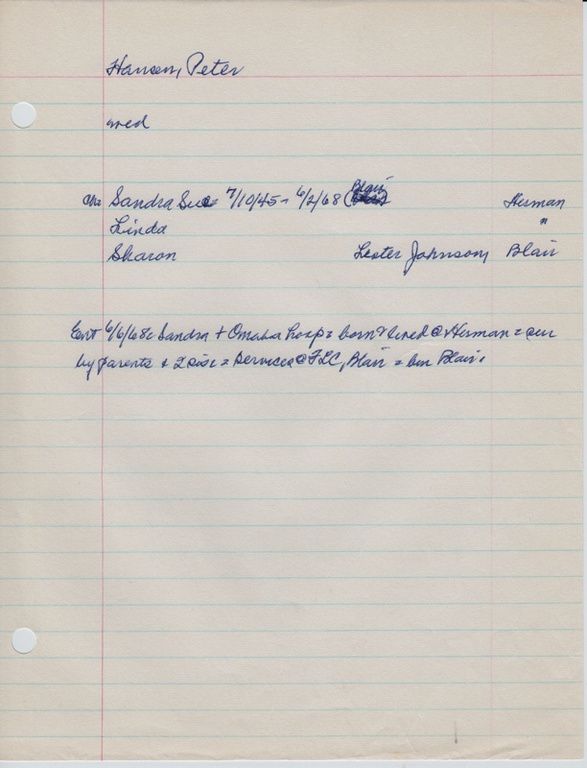 Hansen, Peter
med
Chi Sandra Sue 7/10/45 - 6/2/68 (Blair) Herman
Linda "
Sharon Lester Johnson, Blair
Ent 6/6/68: Sandra + Omaha hosp = born & lived @ Herman = sur
by parents & 2 sis = Services @ FLC, Blair = bur Blair.